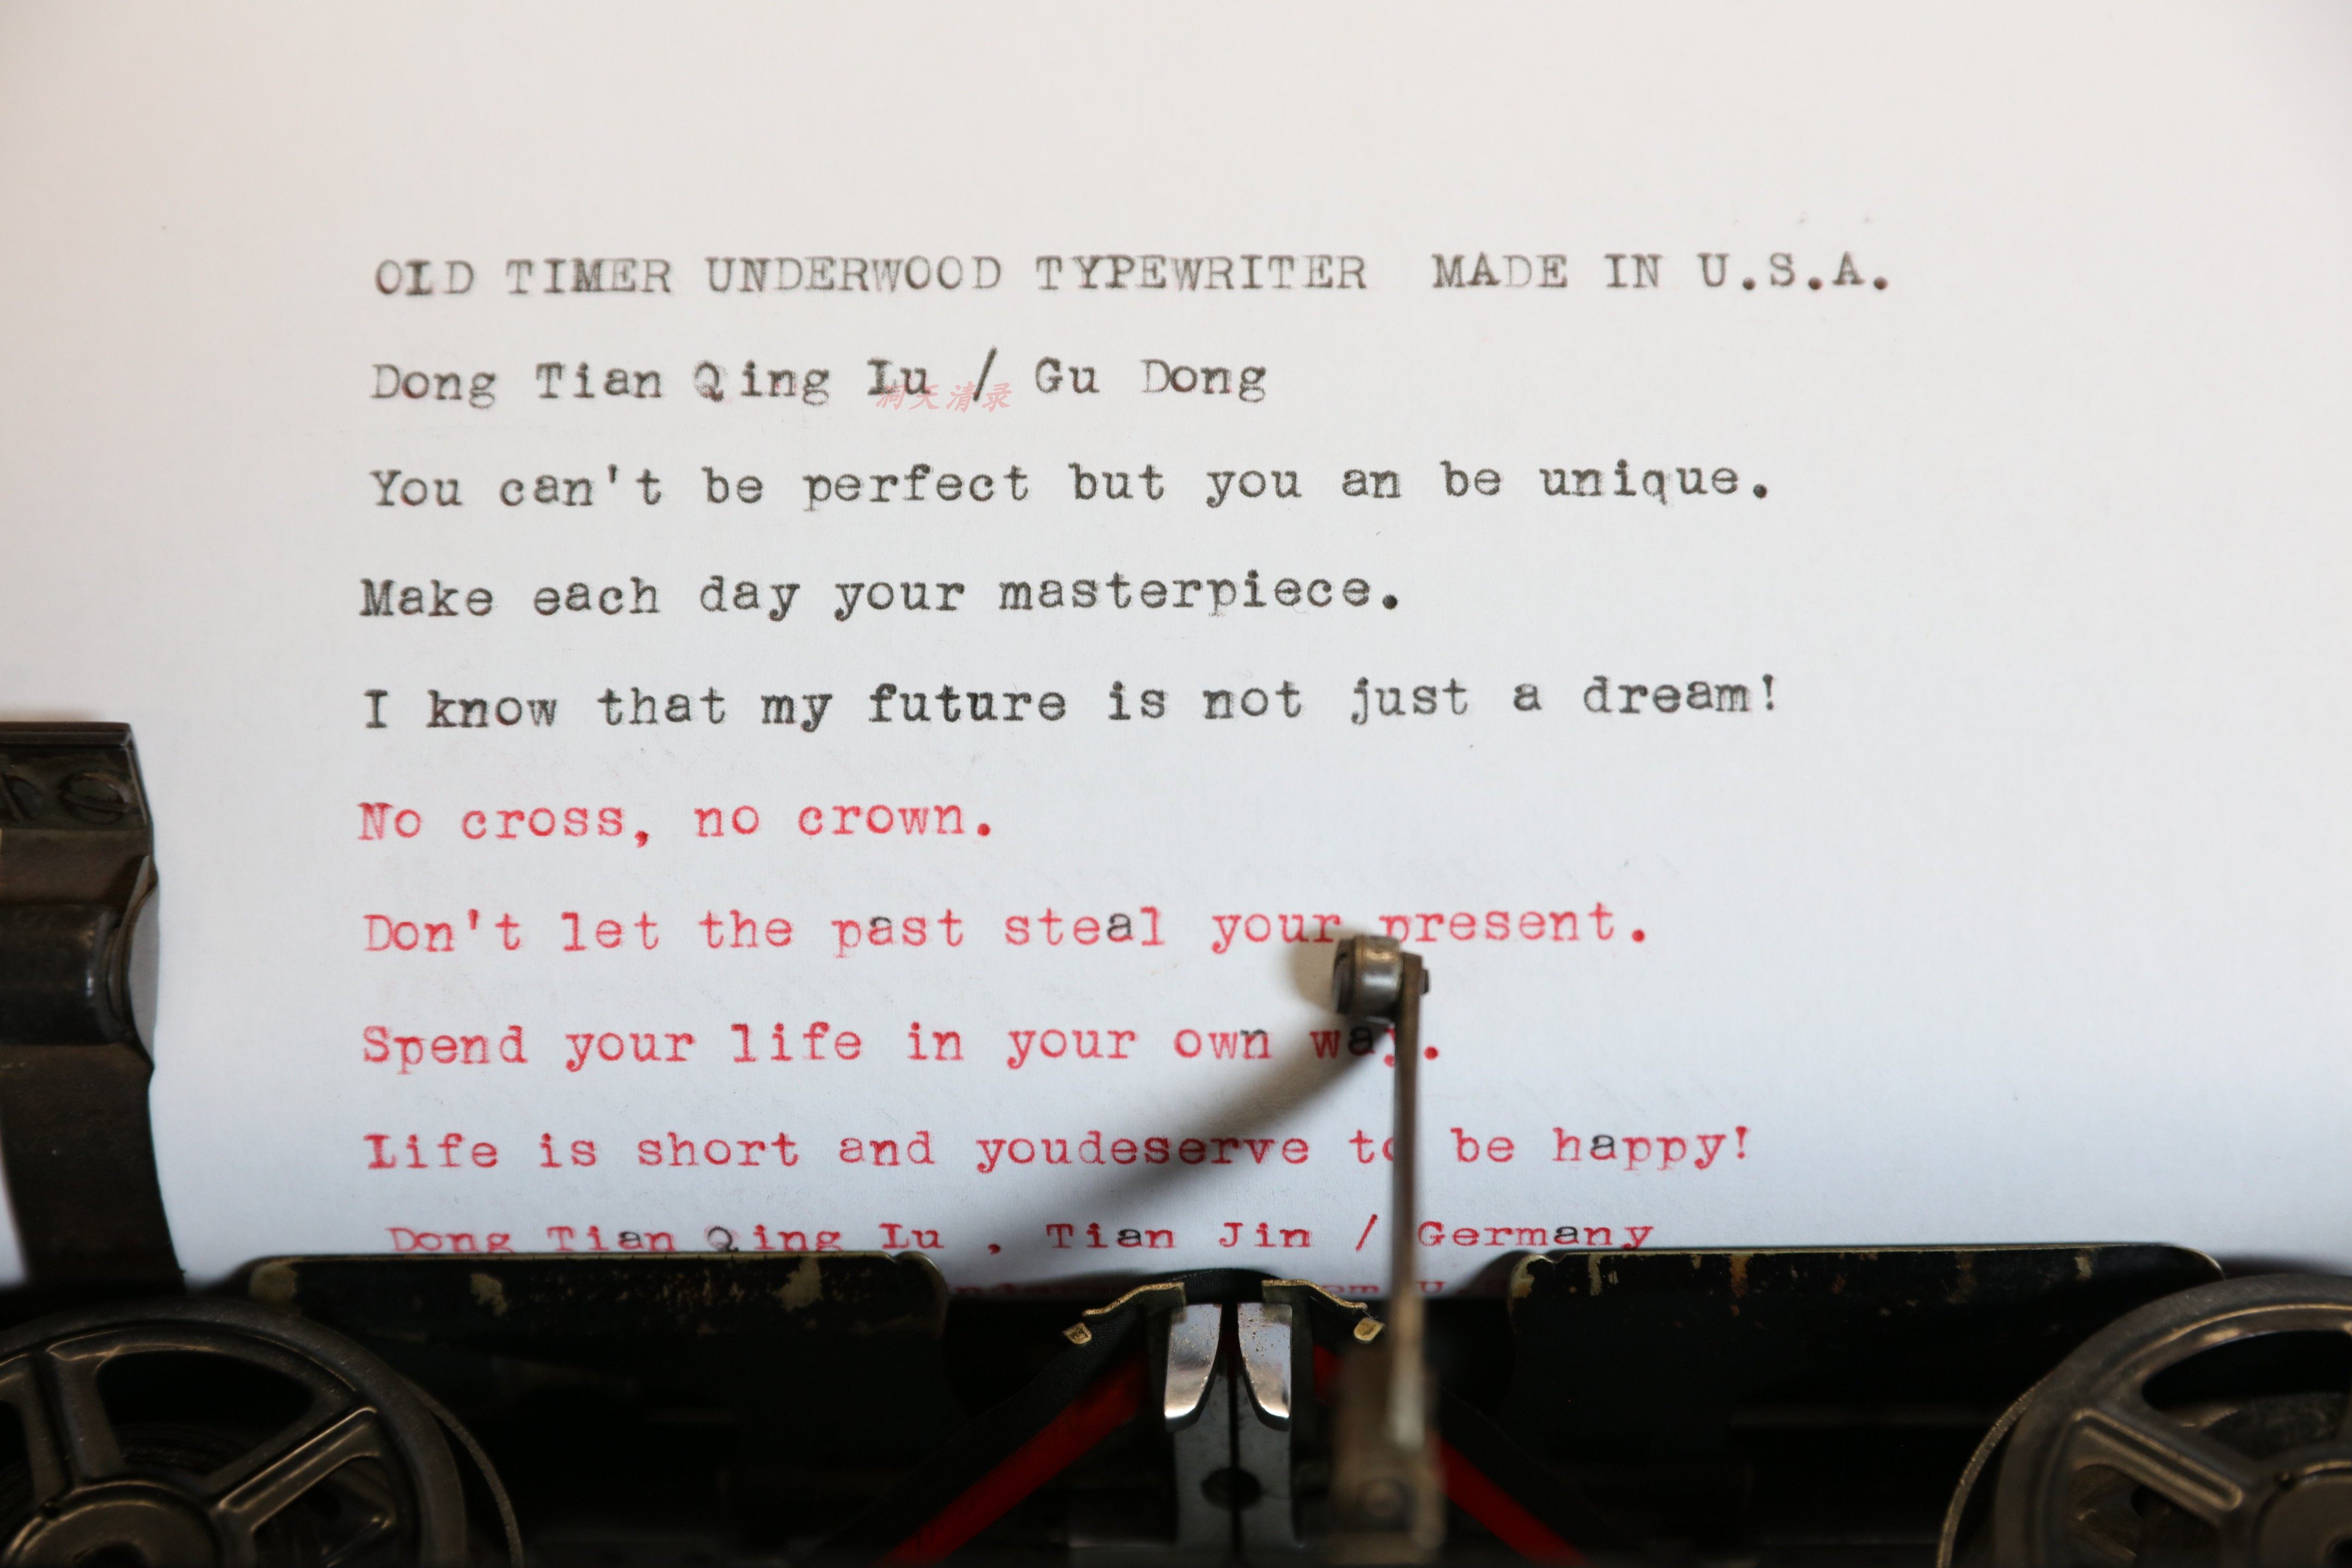 OLD TIMER UNDERWOOD TYPEWRITER  MADE IN U.S.A.
Dong Tian Qing Lu / Gu Dong
洞天清录
You can't be perfect but you an be unique.
Make each day your masterpiece.
I know that my future is not just a dream!
No cross, no crown.
Don't let the past steal your present.
Spend your life in your own way.
Life is short and youdeserve to be happy!
Dong Tian Qing Lu , Tian Jin / Germany